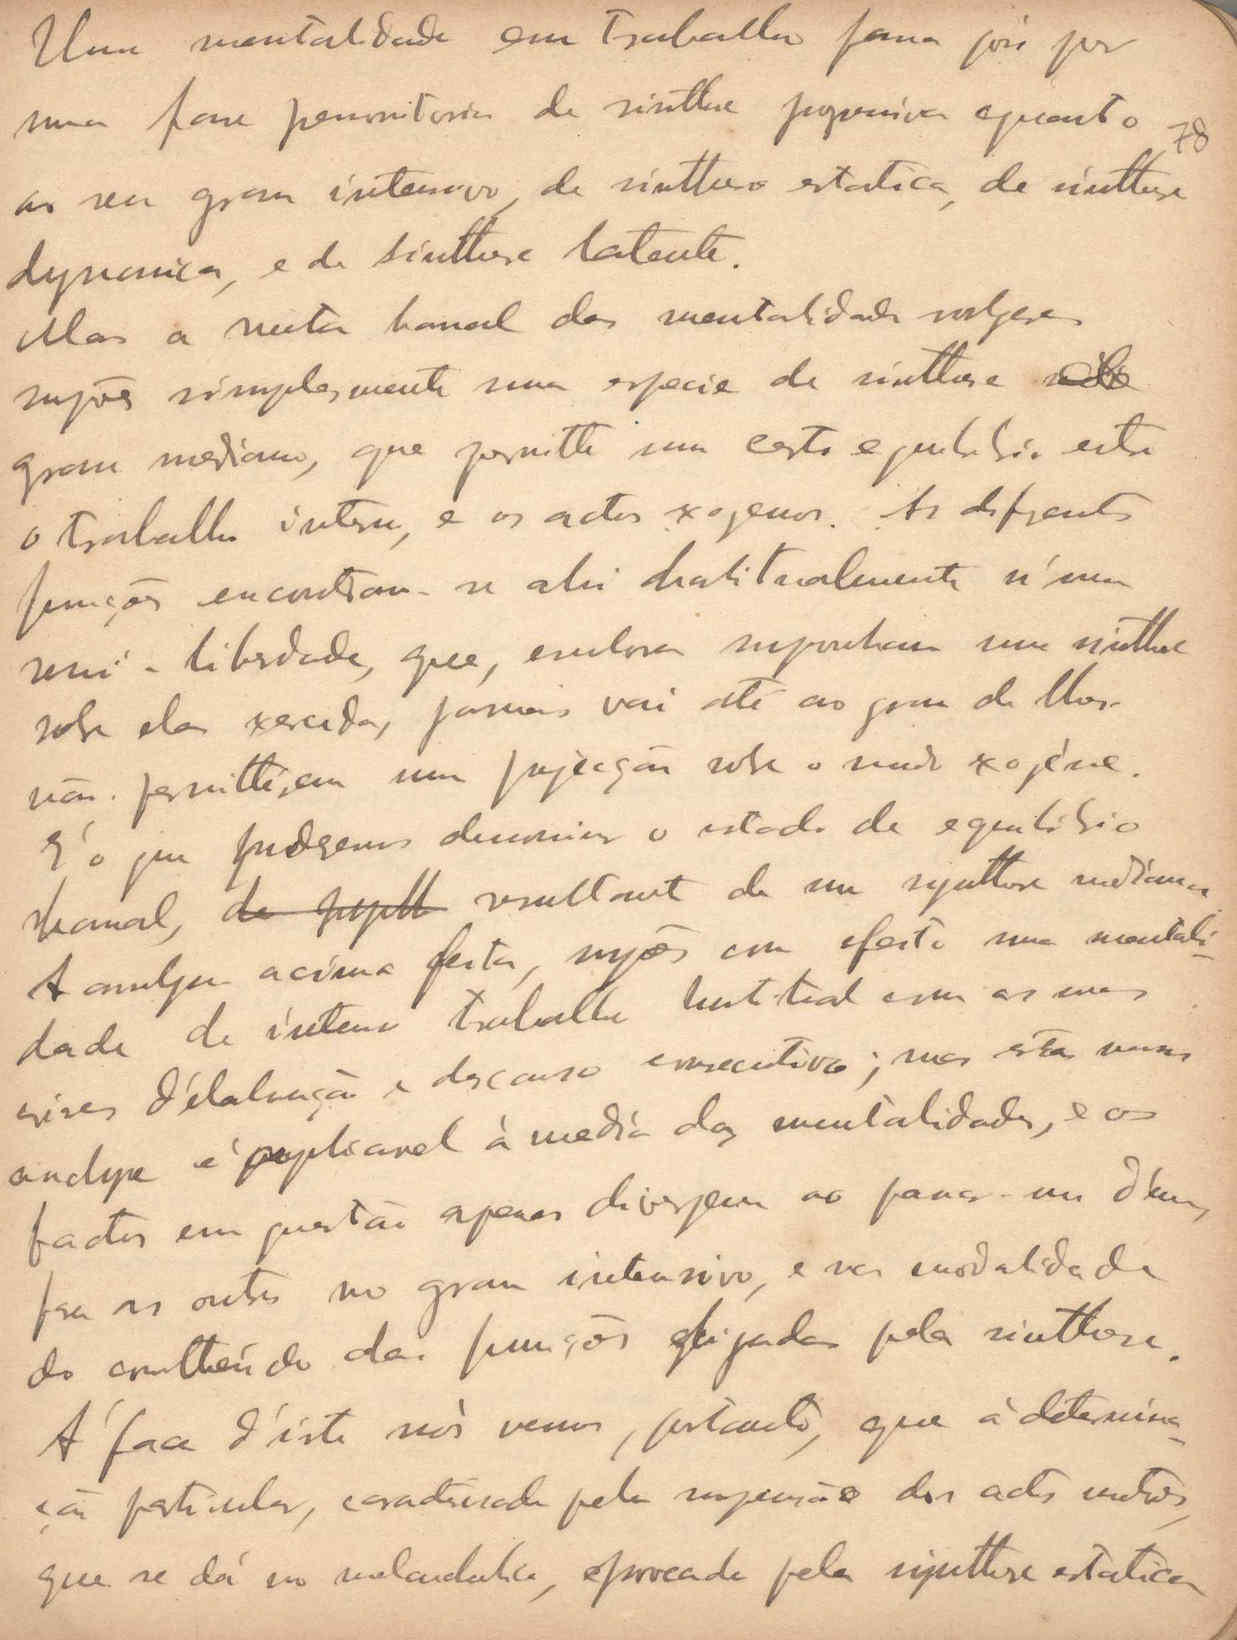 Uma mentalidade em trabalho passa pois por
uma fase premonitoria de sinthese progressiva equanto
ao seu grau intensivo, de sinthese estatica, de sinthese
dynamica, e de sinthese latente.
78
Mas a vista banal das mentalidades vulgares
supõe simplesmente uma especie de sinthese
grau mediano, que permitte um certo equilibrio entre
o trabalho interno, e os actos xogenos. As differentes
funcções encontram-se ahi habitualmente n'uma
semi-liberdade, que, embora suponham uma sinthese
sobre elas xercida, jamais vai até ao grau de lhes
não permittirem uma projecção sobre o mundo xogéne.
É o que podemos denominar o estado de equilibrio
banal, resultante de uma synthese mediana.
A analyse acima feita, supõe com efeito uma mentali-
dade de intenso trabalho com as suas
crises d'elaboração e descanso consecutivo; mas esta mesma
analyse é applicavel á media das mentalidades, e os
factos em questão apenas divergem ao passar-se d'um,
para os outros no grau intensivo, e na modalidade
do conthéudo das funcções pela sinthese.
Á face d'isto nós vemos, portanto, que á determina-
ção particular, caracterisada pela suspensão dos actos
que se dá no melancholico, provocada pela synthese estatica